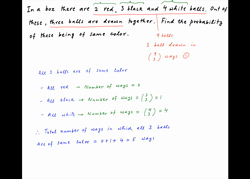 In a box there are 2 red, 3 black and 4 white balls. Out of
these, three balls are drawn together. Find the probability
of these being of same color.
9 balls
3 ball drawn in
(9 3) ways
All 3 balls are of same color
- All red → Number of ways = 0
- All black → Number of ways = (3 3) = 1
- All white → Number of ways = (4 3) = 4
∴ Total number of ways in which all 3 balls
are of same color = 0+1+4 = 5 ways